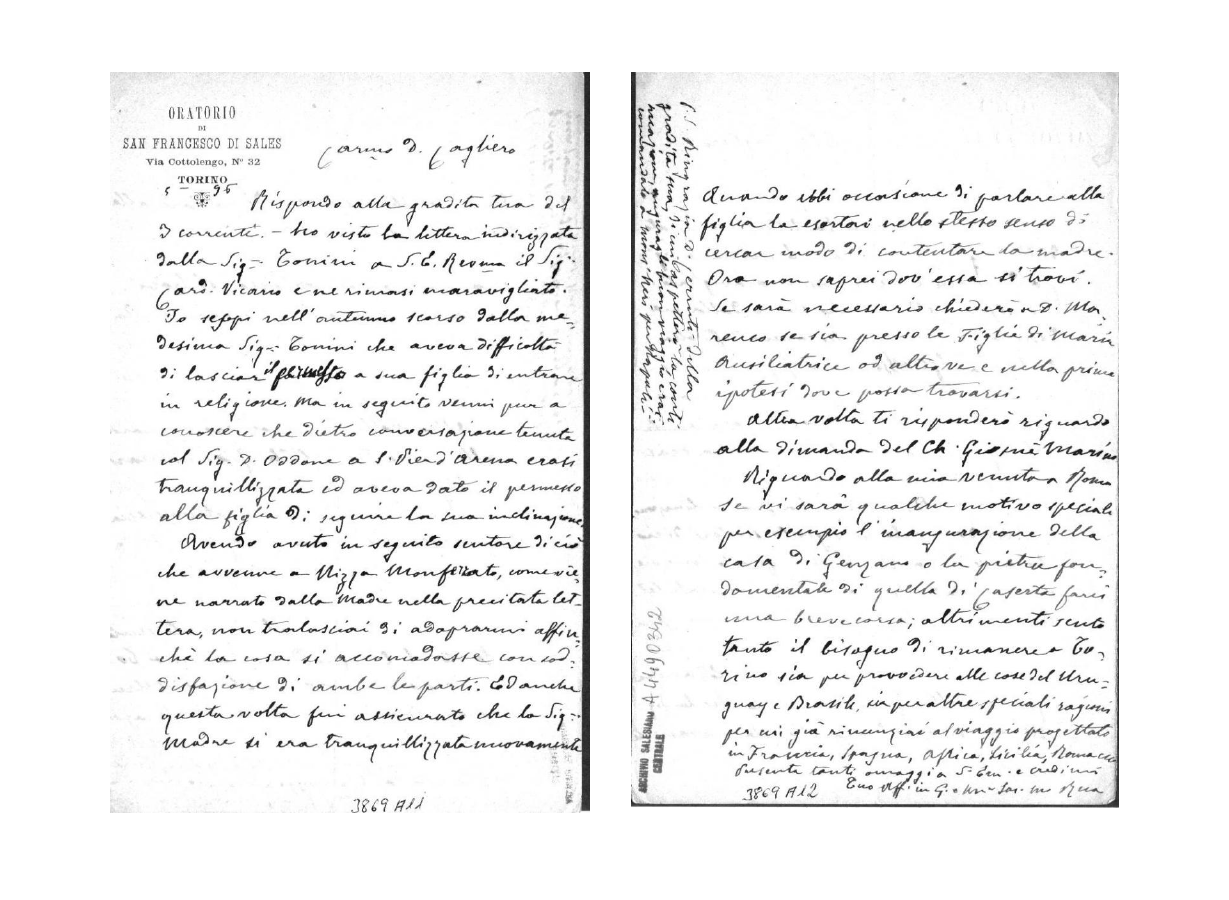 ORATORIO
DI
SAN FRANCESCO DI SALES
Via Cottolengo, N° 32
TORINO
5 – 95
Carmo D. Cagliero
Rispondo alla gradita tua del
3 corrente. – Ho visto la lettera indirizzata
dalla Sig.– Tonini a S. E. Revma il Sig.
Card. Vicario e ne rimasi maravigliato.
Io seppi nell'autunno scorso dalla me-
desima Sig.– Tonini che aveva difficoltà
di lasciar il permesso a sua figlia di entrare
in religione. Ma in seguito venni pur a
conoscere che dietro conversazione tenuta
col Sig. D. Oddone a S. Pier d'Arena erasi
tranquillizzata ed aveva dato il permesso
alla figlia di seguire la sua inclinazione.
Avendo avuto in seguito sentore di ciò
che avvenne a Nizza Monferrato, come vie-
ne narrato dalla Madre nella precitata let-
tera, non tralasciai di adoprarmi affin-
chè la cosa si accomodasse con sod-
disfazione di ambe le parti. Ed anche
questa volta fui assicurato che la Sig.–
Madre si era tranquillizzata nuovamente
3869 A11
P.S. Ringrazia D. Cerruti della
gradita sua di cui aspettava la conti
nuazione
Quando ebbi occasione di parlare alla
figlia la esortai nello stesso senso di
cercar modo di contentare la madre.
Ora non saprei dov'essa si trovi.
Se sarà necessario chiederò a D. Ma-
renco se sia presso le Figlie di Maria
Ausiliatrice od altrove e nella prima
ipotesi dove possa trovarsi.
Altra volta ti risponderò riguardo
alla dimanda del Ch. Giosuè Marino
Riguardo alla mia venuta a Roma
se vi sarà qualche motivo speciale
per esempio l'inaugurazione della
casa di Genzano o la pietra fon-
damentale di quella di Caserta farei
una breve corsa; altrimenti sento
tanto il bisogno di rimanere a To-
rino sia per provvedere alle cose del Uru-
guay e Brasile, sia per altre speciali ragioni
per cui già rinunziai al viaggio progettato
in Francia, Spagna, Africa, Sicilia, Roma ecc
Presenta tanti omaggi a S. Em. e credimi
Tuo aff. in G. e M. Sac. M. Rua
3869 A12
A4490342
ARCHIVIO SALESIANO
CENTRALE